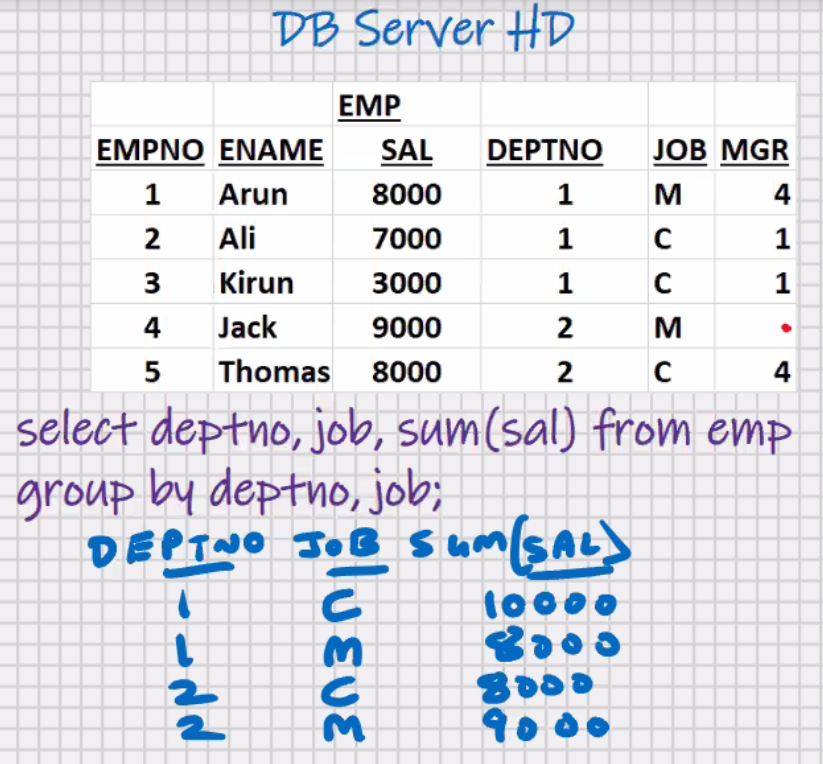 DB Server HD
EMP
EMPNO ENAME SAL DEPTNO JOB MGR
1 Arun 8000 1 M 4
2 Ali 7000 1 C 1
3 Kirun 3000 1 C 1
4 Jack 9000 2 M
5 Thomas 8000 2 C 4
select deptno, job, sum(sal) from emp
group by deptno, job;
DEPTNO JOB SUM(SAL)
1 C 10000
1 M 8000
2 C 8000
2 M 9000